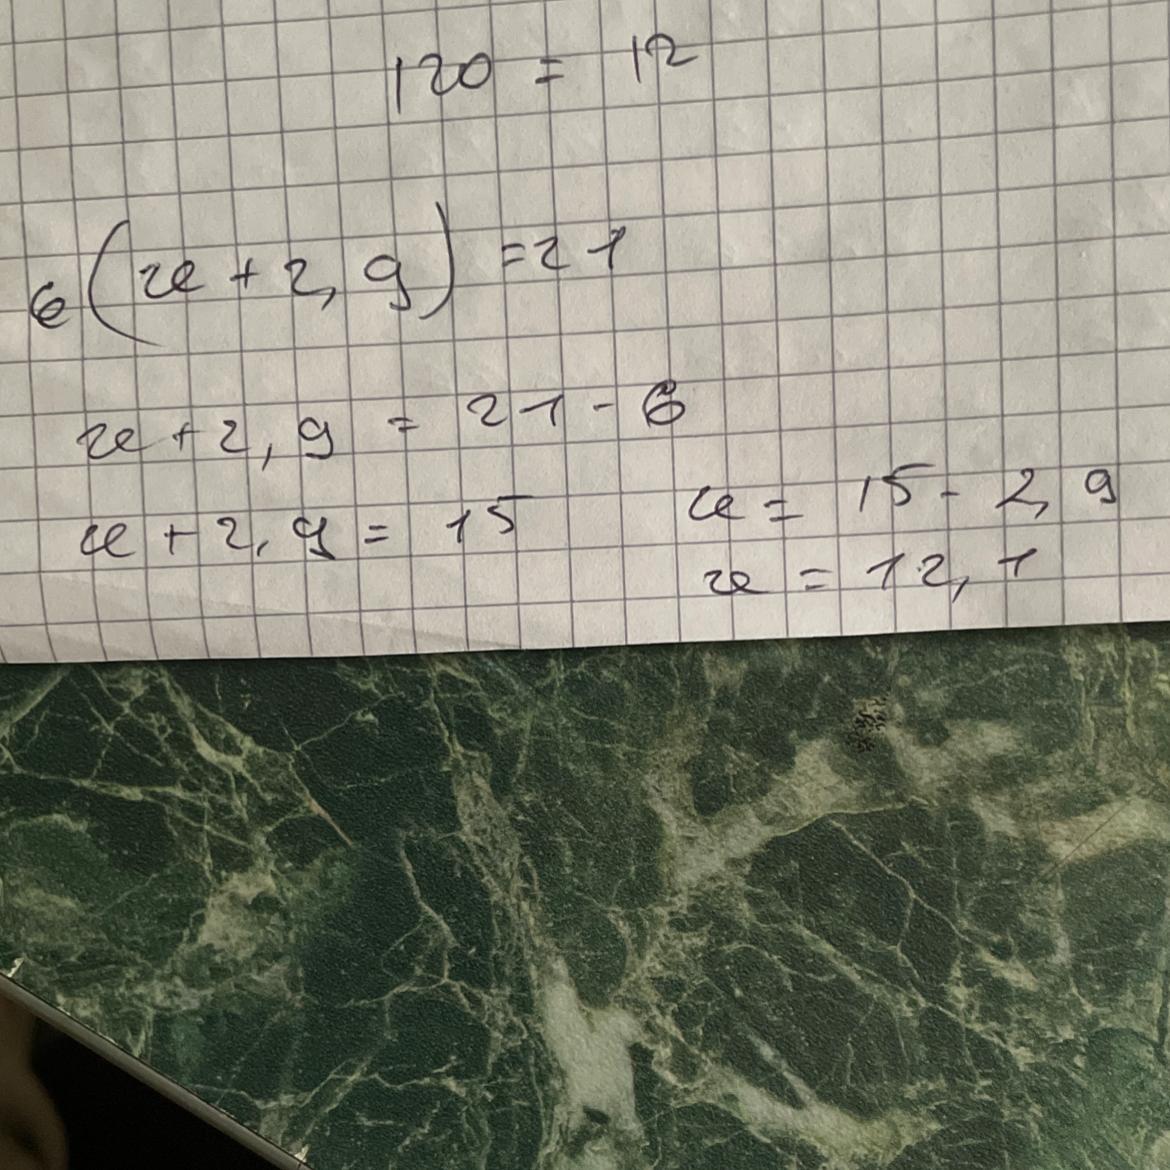 120 = 12
6(x + 2,9) = 21
x + 2,9 = 21 - 6
x + 2,9 = 15
x = 15 - 2,9
x = 12,1